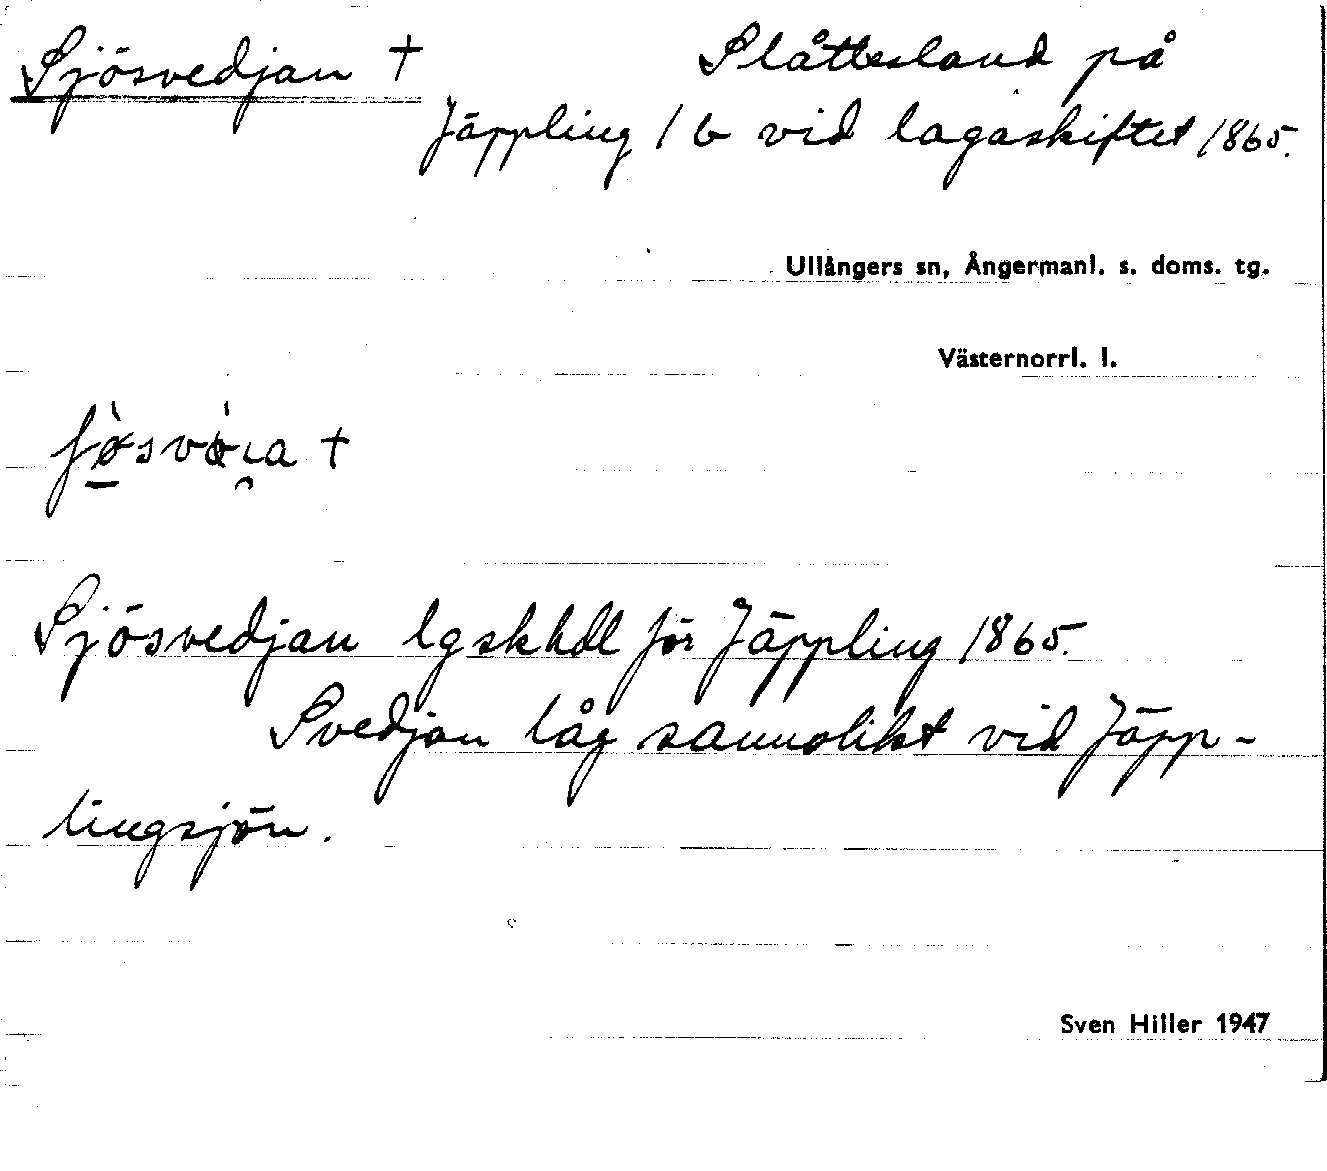 Sjösvedjan † Slåttesland på
Jäppling 1 b vid lagaskiftet 1865.
Ullångers sn, Ångermanl. s. doms. tg.
Västernorrl. l.
†
Sjösvedjan lgskhdl för Jäppling 1865.
Svedjan låg sannolikt vid Jäpp-
lingsjön.
Sven Hiller 1947